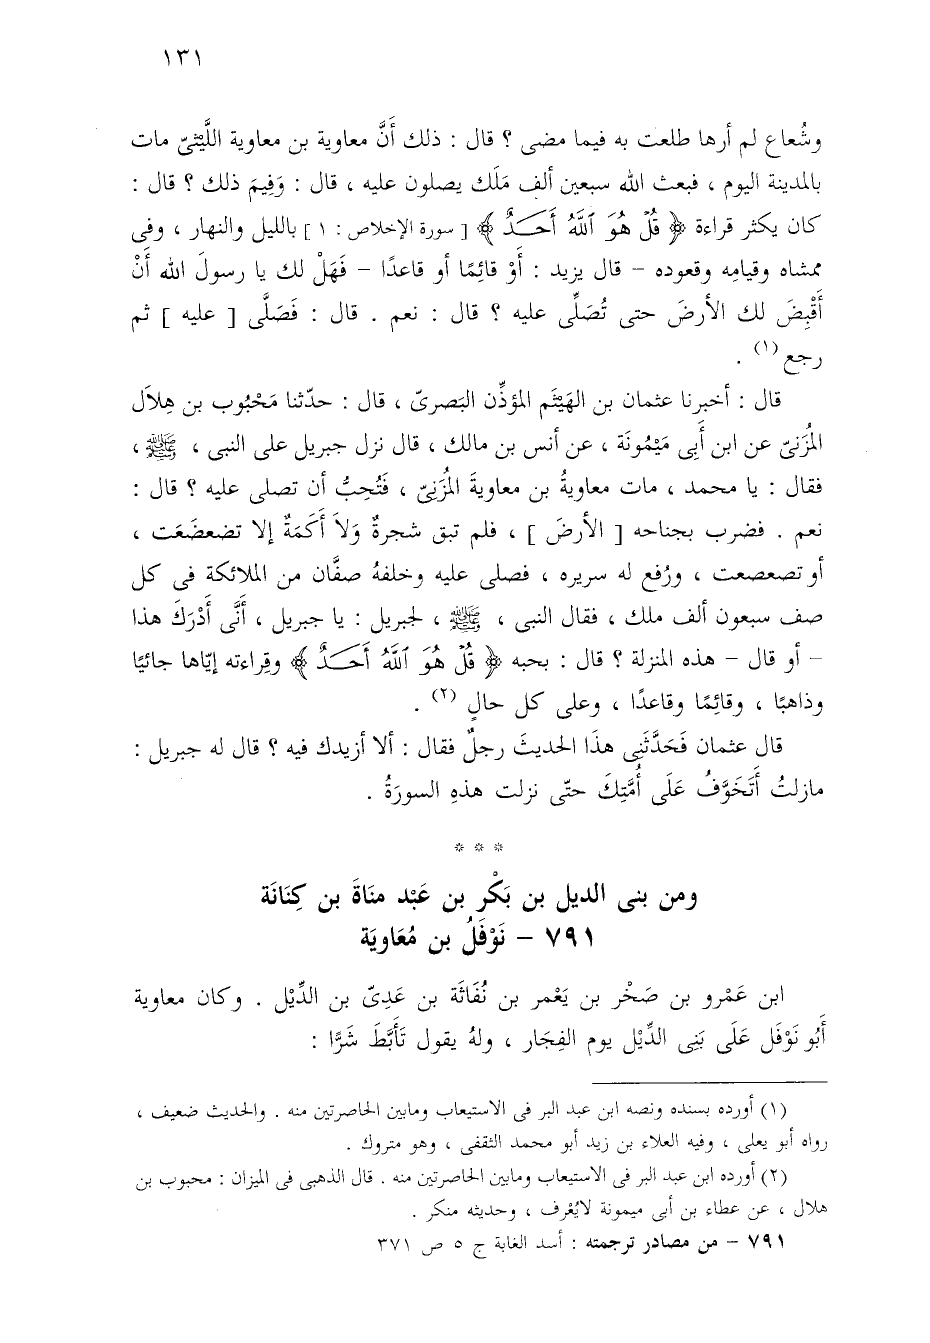 ١٣١
وشُعاع لم أرها طلعت به فيما مضى ؟ قال : ذلك أَنَّ معاوية بن معاوية اللَّيْثىّ مات
بالمدينة اليوم ، فبعث الله سبعين ألف مَلَك يصلون عليه ، قال : وَفِيمَ ذلك ؟ قال :
كان يكثر قراءة ﴿ قُلْ هُوَ ٱللَّهُ أَحَدٌ ﴾ [ سورة الإخلاص : ١ ] بالليل والنهار ، وفى
ممشاه وقيامِه وقعوده – قال يزيد : أَوْ قائِمًا أو قاعدًا – فَهَلْ لك يا رسولَ الله أَنْ
أَقْبِضَ لك الأرضَ حتى تُصَلِّى عليه ؟ قال : نعم . قال : فَصَلَّى [ عليه ] ثم
رجع (١) .
قال : أخبرنا عثمان بن الهَيْثَم المؤذِّن البَصرىّ ، قال : حدّثنا مَحْبُوب بن هِلاَل
المُزَنِىّ عن ابن أَبِى مَيْمُونَة ، عن أنس بن مالك ، قال نزل جبريل على النبى ، ﷺ ،
فقال : يا محمد ، مات معاويةُ بن معاويةَ المُزَنِىّ ، فَتُحِبُّ أن تصلى عليه ؟ قال :
نعم . فضرب بجناحه [ الأرضَ ] ، فلم تبق شجرةٌ وَلاَ أَكَمَةٌ إلا تضعضَعَت ،
أو تصعصعت ، ورُفع له سريره ، فصلى عليه وخلفهُ صفَّان من الملائكة فى كل
صف سبعون ألف ملك ، فقال النبى ، ﷺ ، لجبريل : يا جبريل ، أَنَّى أَدْرَكَ هذا
– أو قال – هذه المنزلة ؟ قال : بحبه ﴿ قُلْ هُوَ ٱللَّهُ أَحَدٌ ﴾ وقِراءته إيّاها جائيًا
وذاهبًا ، وقائِمًا وقاعدًا ، وعلى كل حالٍ (٢) .
قال عثمان فَحَدَّثَنِى هذَا الحديثَ رجلٌ فقال : ألا أزيدك فيه ؟ قال له جبريل :
مازلتُ أَتَخَوَّفُ عَلَى أُمَّتِكَ حتّى نزلت هذهِ السورَةُ .
* * *
ومن بنى الديل بن بَكْر بن عَبْد منَاةَ بن كِنَانَة
٧٩١ – نَوْفَلُ بن مُعَاوِيَة
ابن عَمْرو بن صَخْر بن يَعْمر بن نُفَاثَة بن عَدِىّ بن الدِّيْل . وكان معاوية
أَبُو نَوْفَل عَلَى بَنِى الدِّيْل يوم الفِجَار ، ولهُ يقول تَأَبَّطَ شَرًّا :
(١) أورده بسنده ونصه ابن عبد البر فى الاستيعاب ومابين الحاصرتين منه . والحديث ضعيف ،
رواه أبو يعلى ، وفيه العلاء بن زيد أبو محمد الثقفى ، وهو متروك .
(٢) أورده ابن عبد البر فى الاستيعاب ومابين الحاصرتين منه . قال الذهبى فى الميزان : محبوب بن
هلال ، عن عطاء بن أبى ميمونة لايُعْرف ، وحديثه منكر .
٧٩١ – من مصادر ترجمته : أسد الغابة ج ٥ ص ٣٧١